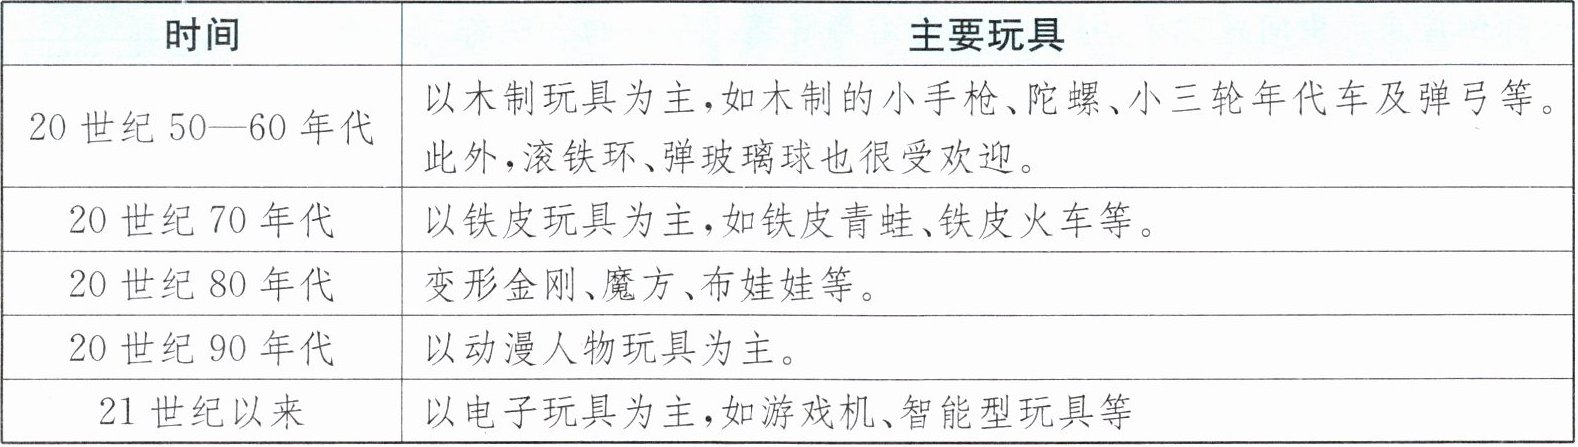 时间 主要玩具
20世纪50—60年代 以木制玩具为主,如木制的小手枪、陀螺、小三轮年代车及弹弓等。
此外,滚铁环、弹玻璃球也很受欢迎。
20世纪70年代 以铁皮玩具为主,如铁皮青蛙、铁皮火车等。
20世纪80年代 变形金刚、魔方、布娃娃等。
20世纪90年代 以动漫人物玩具为主。
21世纪以来 以电子玩具为主,如游戏机、智能型玩具等